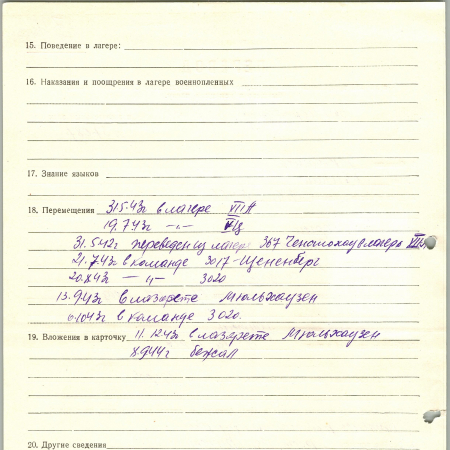 15. Поведение в лагере:
16. Наказания и поощрения в лагере военнопленных
17. Знание языков
18. Перемещения 31.5.43г в лагере VIIA
19.7.43г —„— VЦ
31.5.42г переведен из лагеря 367 Ченстохау в лагерь
21.7.43г в команде 3017-
—„— 3020
13.9.43г в лазарете Мюльхаузен
в команде 3020.
19. Вложения в карточку 11.12.43г в лазарете Мюльхаузен
8.9.44г бежал
20. Другие сведения